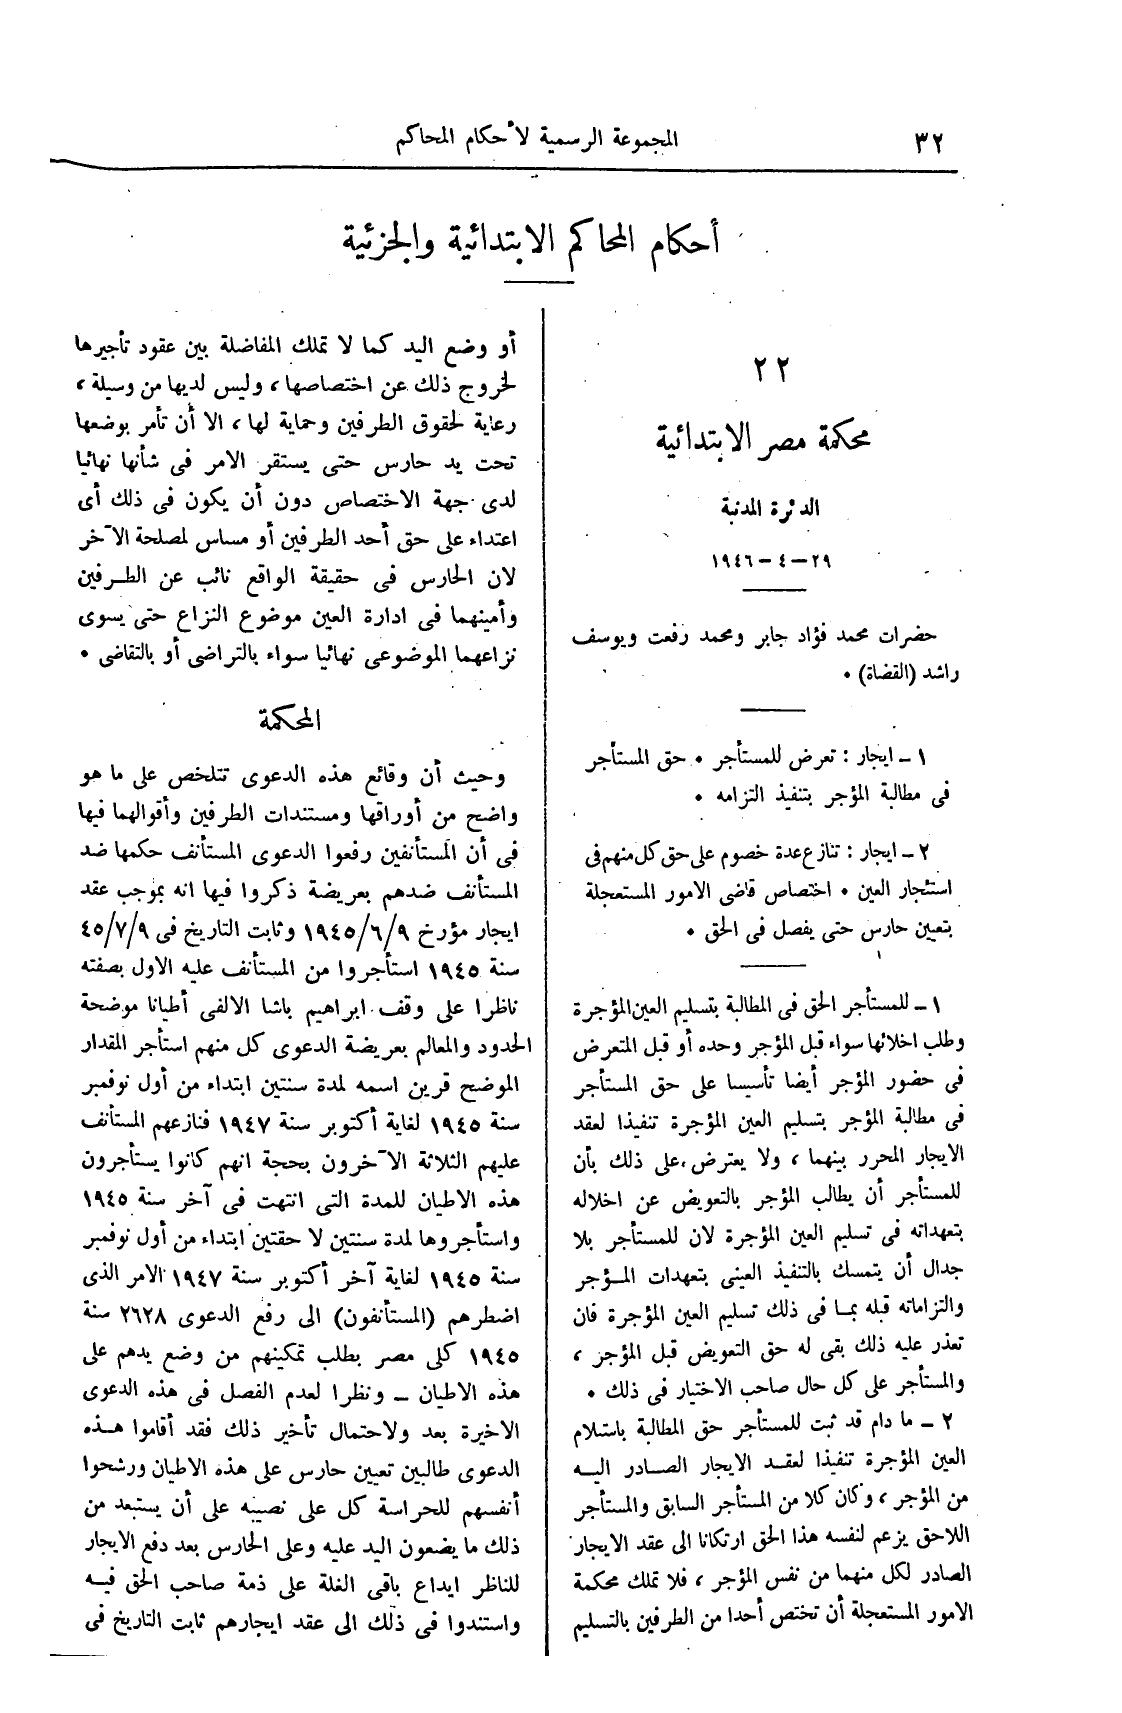 ٣٢
المجموعة الرسمية لأحكام المحاكم
أحكام المحاكم الابتدائية والجزئية
٢٢
محكمة مصر الابتدائية
الدئرة المدنية
٢٩ – ٤ – ١٩٤٦
حضرات محمد فؤاد جابر ومحمد رفعت ويوسف
راشد (القضاة) •
١ – ايجار : تعرض للمستأجر • حق المستأجر
فى مطالبة المؤجر بتنفيذ التزامه •
٢ – ايجار : تنازع عدة خصوم على حق كل منهم فى
استئجار العين • اختصاص قاضى الامور المستعجلة
بتعيين حارس حتى يفصل فى الحق •
١ – للمستأجر الحق فى المطالبة بتسليم العين المؤجرة
وطلب اخلائها سواء قبل المؤجر وحده أو قبل المتعرض
فى حضور المؤجر أيضا تأسيسا على حق المستأجر
فى مطالبة المؤجر بتسليم العين المؤجرة تنفيذا لعقد
الايجار المحرر بينهما ، ولا يعترض على ذلك بأن
للمستأجر أن يطالب المؤجر بالتعويض عن اخلاله
بتعهداته فى تسليم العين المؤجرة لان للمستأجر بلا
جدال أن يتمسك بالتنفيذ العينى بتعهدات المؤجر
والتزاماته قبله بما فى ذلك تسليم العين المؤجرة فان
تعذر عليه ذلك بقى له حق التعويض قبل المؤجر ،
والمستأجر على كل حال صاحب الاختيار فى ذلك •
٢ – ما دام قد ثبت للمستأجر حق المطالبة باستلام
العين المؤجرة تنفيذا لعقد الايجار الصادر اليه
من المؤجر ، وكان كلا من المستأجر السابق والمستأجر
اللاحق يزعم لنفسه هذا الحق ارتكانا الى عقد الايجار
الصادر لكل منهما من نفس المؤجر ، فلا تملك محكمة
الامور المستعجلة أن تختص أحدا من الطرفين بالتسليم
أو وضع اليد كما لا تملك المفاضلة بين عقود تأجيرها
لخروج ذلك عن اختصاصها ، وليس لديها من وسيلة ،
رعاية لحقوق الطرفين وحماية لها ، الا أن تأمر بوضعها
تحت يد حارس حتى يستقر الامر فى شأنها نهائيا
لدى جهة الاختصاص دون أن يكون فى ذلك أى
اعتداء على حق أحد الطرفين أو مساس لمصلحة الآخر
لان الحارس فى حقيقة الواقع نائب عن الطرفين
وأمينهما فى ادارة العين موضوع النزاع حتى يسوى
نزاعهما الموضوعى نهائيا سواء بالتراضى أو بالتقاضى •
المحكمة
وحيث أن وقائع هذه الدعوى تتلخص على ما هو
واضح من أوراقها ومستندات الطرفين وأقوالهما فيها
فى أن المستأنفين رفعوا الدعوى المستأنف حكمها ضد
المستأنف ضدهم بعريضة ذكروا فيها انه بموجب عقد
ايجار مؤرخ ١٩٤٥/٦/٩ وثابت التاريخ فى ٤٥/٧/٩
سنة ١٩٤٥ استأجروا من المستأنف عليه الاول بصفته
ناظرا على وقف ابراهيم باشا الالفى أطيانا موضحة
الحدود والمعالم بعريضة الدعوى كل منهم استأجر المقدار
الموضح قرين اسمه لمدة سنتين ابتداء من أول نوفمبر
سنة ١٩٤٥ لغاية أكتوبر سنة ١٩٤٧ فنازعهم المستأنف
عليهم الثلاثة الآخرون بحجة انهم كانوا يستأجرون
هذه الاطيان للمدة التى انتهت فى آخر سنة ١٩٤٥
واستأجروها لمدة سنتين لاحقتين ابتداء من أول نوفمبر
سنة ١٩٤٥ لغاية آخر أكتوبر سنة ١٩٤٧ الامر الذى
اضطرهم (المستأنفون) الى رفع الدعوى ٢٦٢٨ سنة
١٩٤٥ كلى مصر بطلب تمكينهم من وضع يدهم على
هذه الاطيان – ونظرا لعدم الفصل فى هذه الدعوى
الاخيرة بعد ولاحتمال تأخير ذلك فقد أقاموا هذه
الدعوى طالبين تعيين حارس على هذه الاطيان ورشحوا
أنفسهم للحراسة كل على نصيبه على أن يستبعد من
ذلك ما يضعون اليد عليه وعلى الحارس بعد دفع الايجار
للناظر ايداع باقى الغلة على ذمة صاحب الحق فيه
واستندوا فى ذلك الى عقد ايجارهم ثابت التاريخ فى